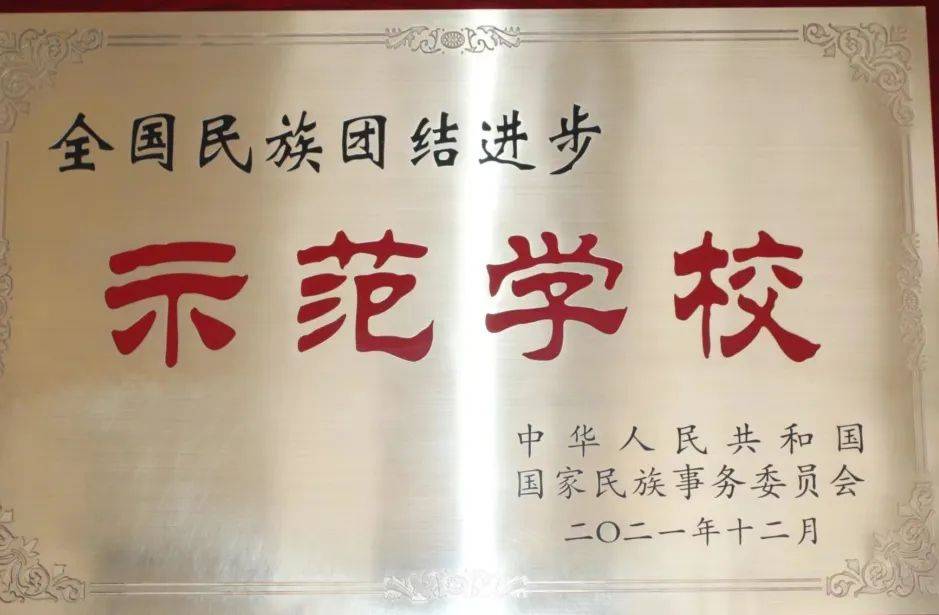 全国民族团结进步
示范学校
中华人民共和国
国家民族事务委员会
二〇二一年十二月